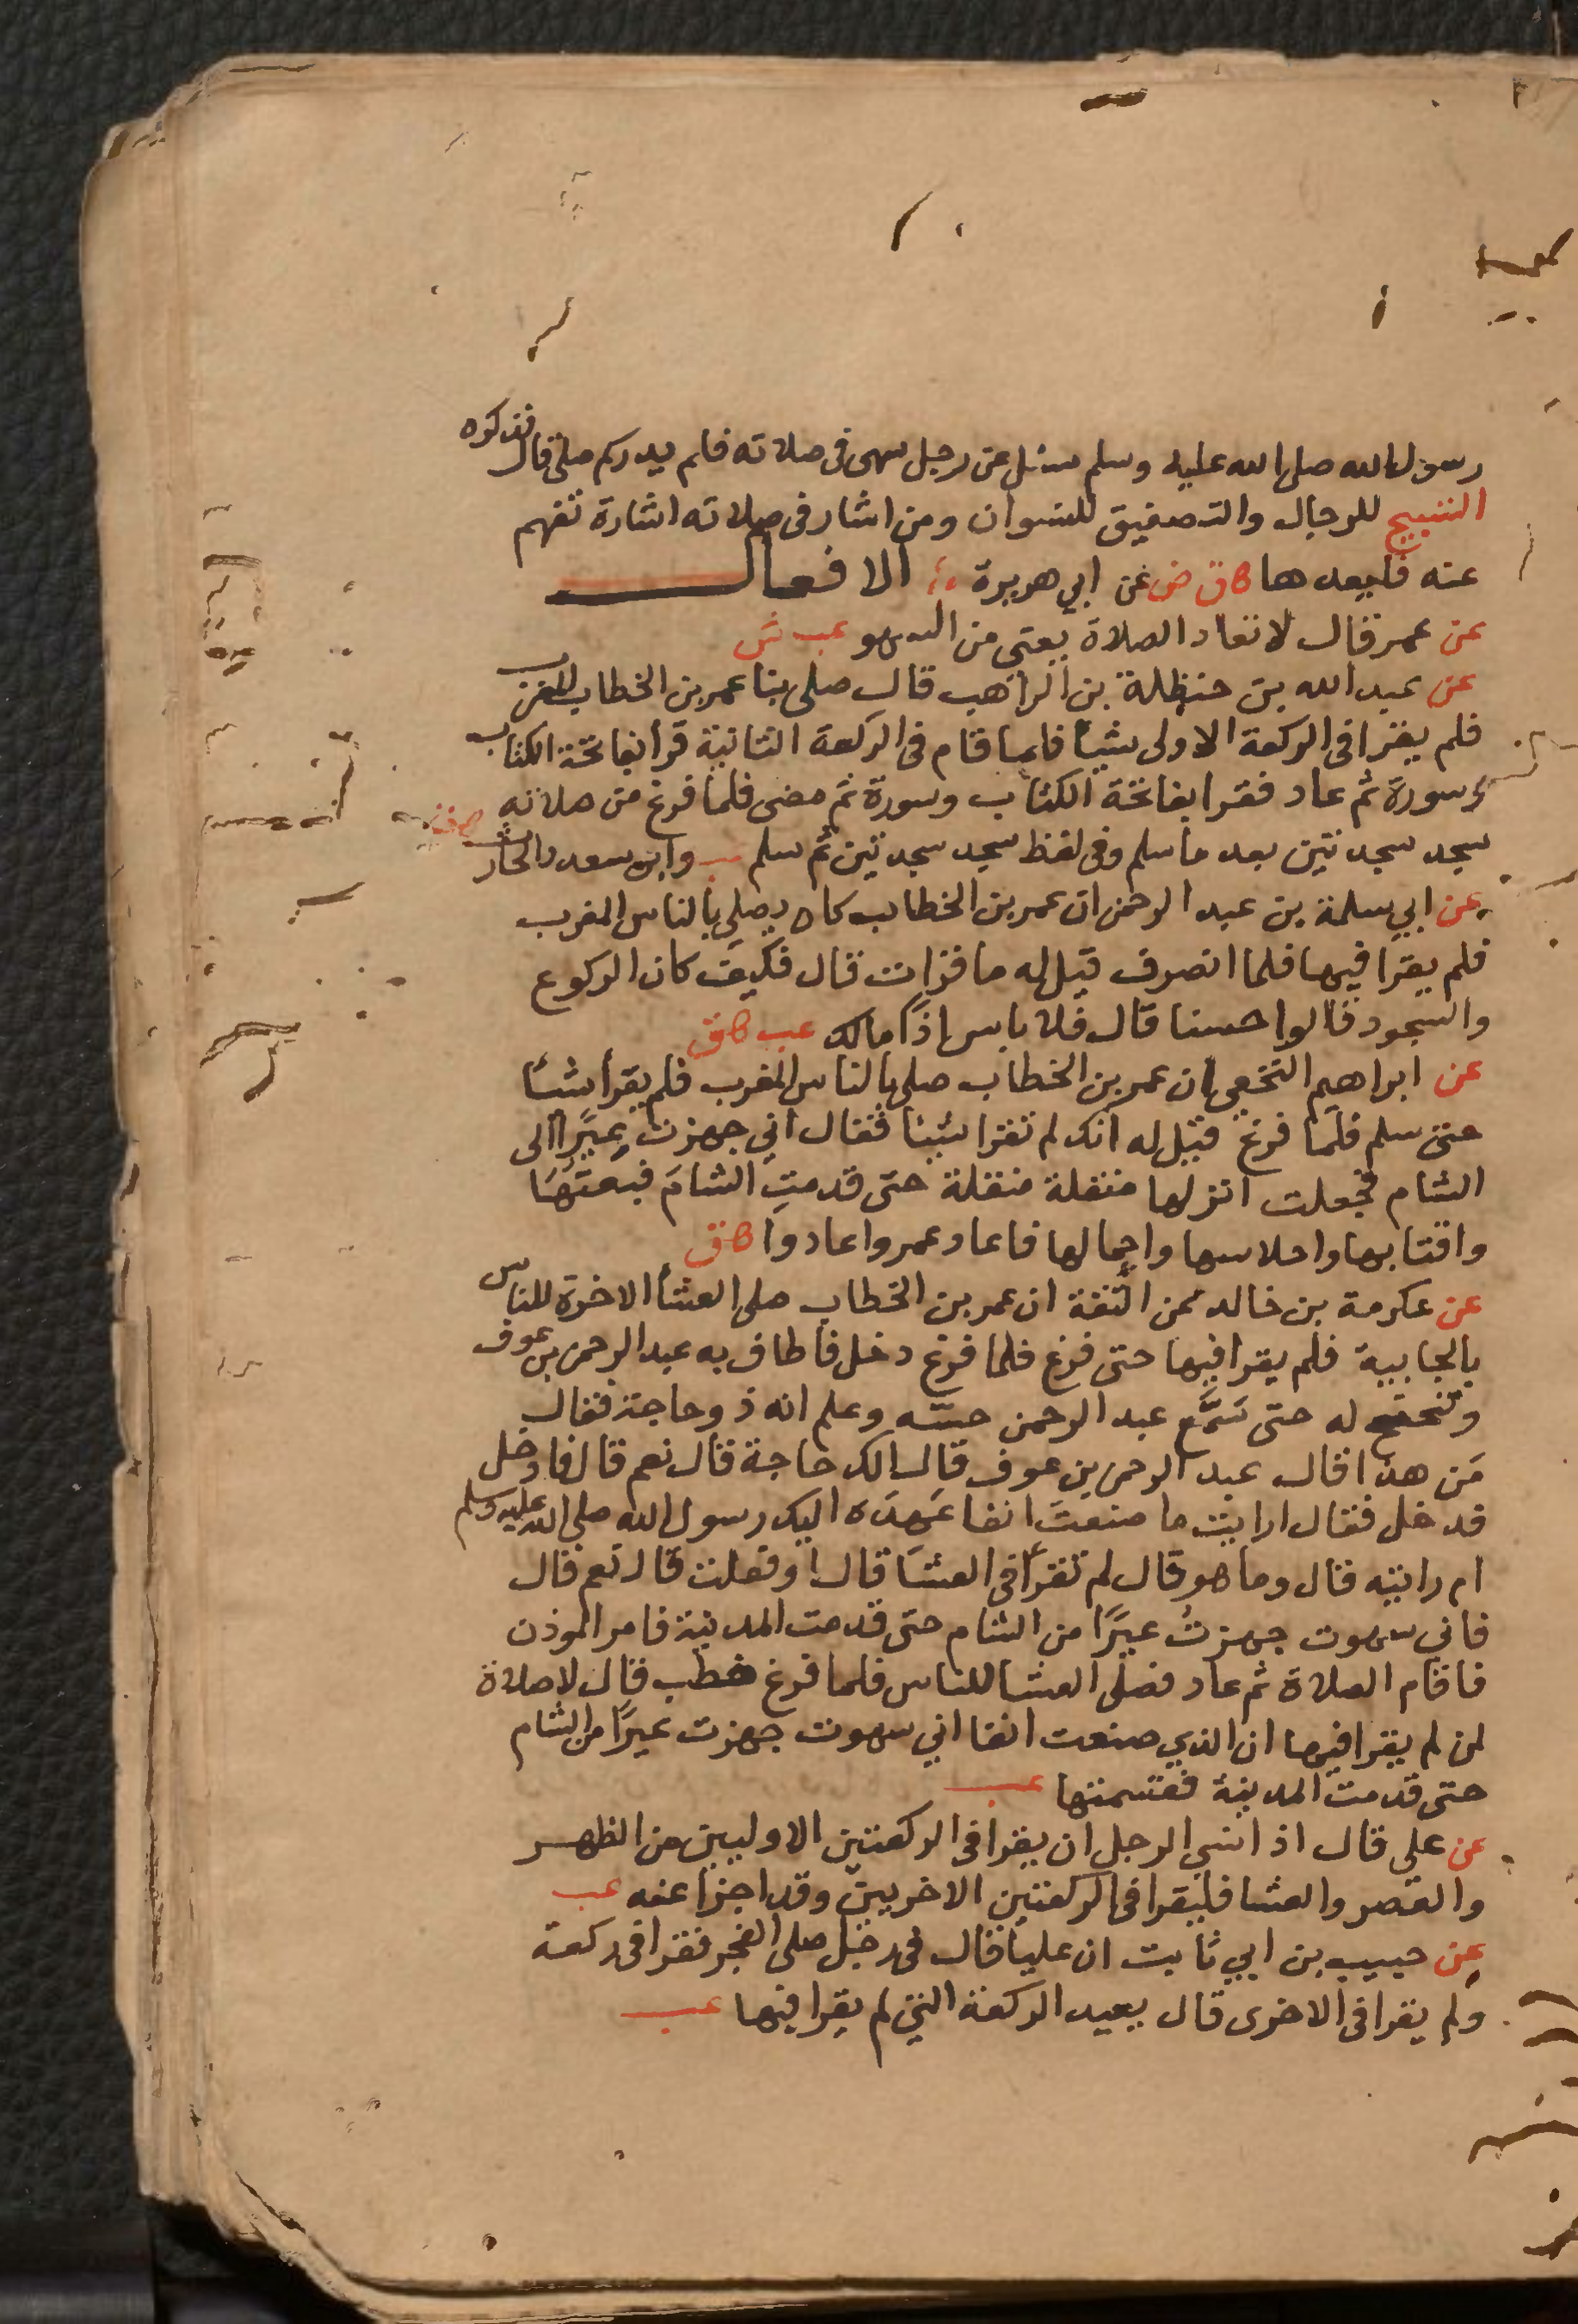 رسول الله صلى الله عليه وسلم سئل عن رجل سهى فى صلاته فلم يدركم صلى قال فذكره
التسبيح للرجال والتصفيق للنسوان ومن اشار فى صلاته اشارة تفهم
عنه فليعدها ق ض عن ابي هريرة الافعال
عن عمر قال لا تعاد الصلاة يعنى من السهو عب ش
عن عبد الله بن حنظلة بن الراهب قال صلى بنا عمر بن الخطاب المغرب
فلم يقرا فى الركعة الاولى شيئا فلما قام فى الركعة الثانية قرا بفاتحة الكتاب
وسورة ثم عاد فقرا بفاتحة الكتاب وسورة ثم مضى فلما فرغ من صلاته
سجد سجدتين بعد ما سلم وفى لفظ سجد سجدتين ثم سلم عب وابن سعد والحارث
عن ابي سلمة بن عبد الرحمن ان عمر بن الخطاب كان يصلي بالناس المغرب
فلم يقرا فيها فلما انصرف قيل له ما قرات قال فكيف كان الركوع
والسجود قالوا حسنا قال فلا باس اذًا مالك عب ق
عن ابراهيم النخعي ان عمر بن الخطاب صلى بالناس المغرب فلم يقرأ شئا
حتى سلم فلما فرغ قيل له انك لم تقرا شيئا فقال اني جهزت عيرًا الى
الشام فجعلت انزلها منقلة منقلة حتى قدمت الشام فبعتها
واقتابها واحلاسها واحمالها فاعاد عمر واعادوا ق
عن عكرمة بن خالد عمن الثقة ان عمر بن الخطاب صلى العشا الاخرة للناس
بالجابية فلم يقرا فيها حتى فرغ فلما فرغ دخل فاطاف به عبد الرحمن بن عوف
وتنحنح له حتى سَمَّع عبد الرحمن حسّه وعلم انه ذو حاجة فقال
مَن هذا قال عبد الرحمن بن عوف قال الك حاجة قال نعم قال فادخل
فدخل فقال ارايت ما صنعتَ انفا عهده اليك رسول الله صلى الله عليه وسلم
ام رايته قال وما هو قال لم تقرا فى العشا قال اوفعلت قال نعم قال
فاني سهوت جهزتُ عيرًا من الشام حتى قدمت المدينة فامر الموذن
فاقام الصلاة ثم عاد فصلى العشا للناس فلما فرغ خطب قال لا صلاة
لمن لم يقرا فيها ان الذي صنعت انفا اني سهوت جهزت عيرًا من الشام
حتى قدمت المدينة فقسمتها عب
عن علي قال اذا نسي الرجل ان يقرا فى الركعتين الاوليين من الظهر
والعصر والعشا فليقرا فى الركعتين الاخريين وقد اجزا عنه عب
عن حبيب بن ابي ثابت ان عليا قال فى رجل صلى الفجر فقرا فى ركعة
ولم يقرا فى الاخرى قال يعيد الركعة التي لم يقرا فيها عب